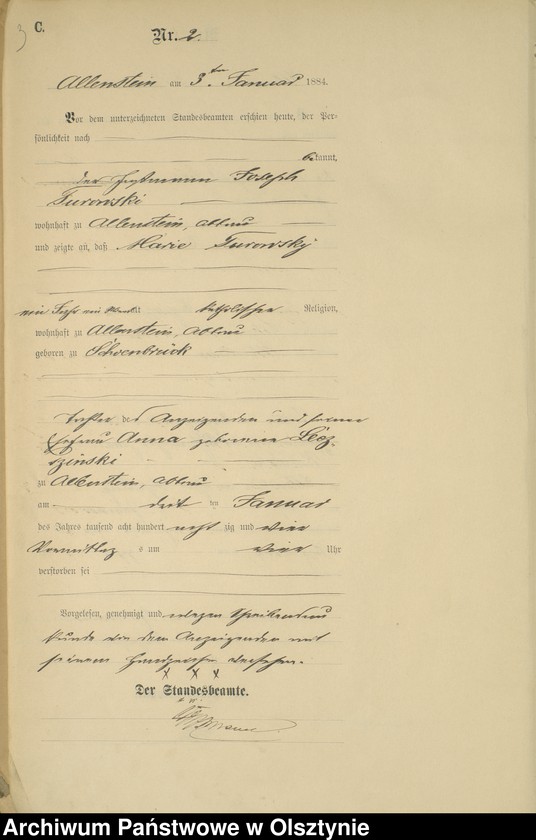 C.
3
Nr. 2.
Allenstein am 3ten Januar 1884.
Vor dem unterzeichneten Standesbeamten erschien heute, der Per-
sönlichkeit nach
bekannt,
der Joseph
Turowski
wohnhaft zu Allenstein, Abbau
und zeigte an, daß Marie Turowsky
ein Jahr alt katholischer Religion,
wohnhaft zu Allenstein, Abbau
geboren zu Schoenbrück
Tochter des Anzeigenden und seiner
Ehefrau Anna geborenen Lesz-
zinski
zu Allenstein, Abbau
am ten Januar
des Jahres tausend acht hundert acht zig und vier
Vormittags um vier Uhr
verstorben sei
Vorgelesen, genehmigt und wegen Schreibens
kunde von dem Anzeigenden mit
seinem Handzeichen versehen.
x x x
Der Standesbeamte.